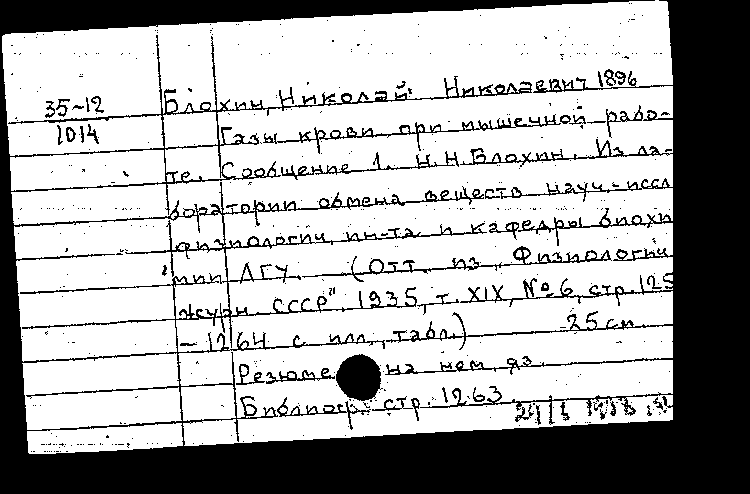 35-12
1014
Блохин, Николай Николаевич 1896
Газы крови при мышечной рабо-
те. Сообщение 1. Н.Н. Блохин. Из ла-
боратории обмена веществ науч.-иссл
физиологич. ин-та и кафедры биохи
мии ЛГУ. (Отт. из „Физиологич
журн. СССР". 1935, т. XIX, № 6, стр. 125
- 1264 с илл., табл.) 25 см.
Резюме на нем. яз.
Библиогр. стр. 1263